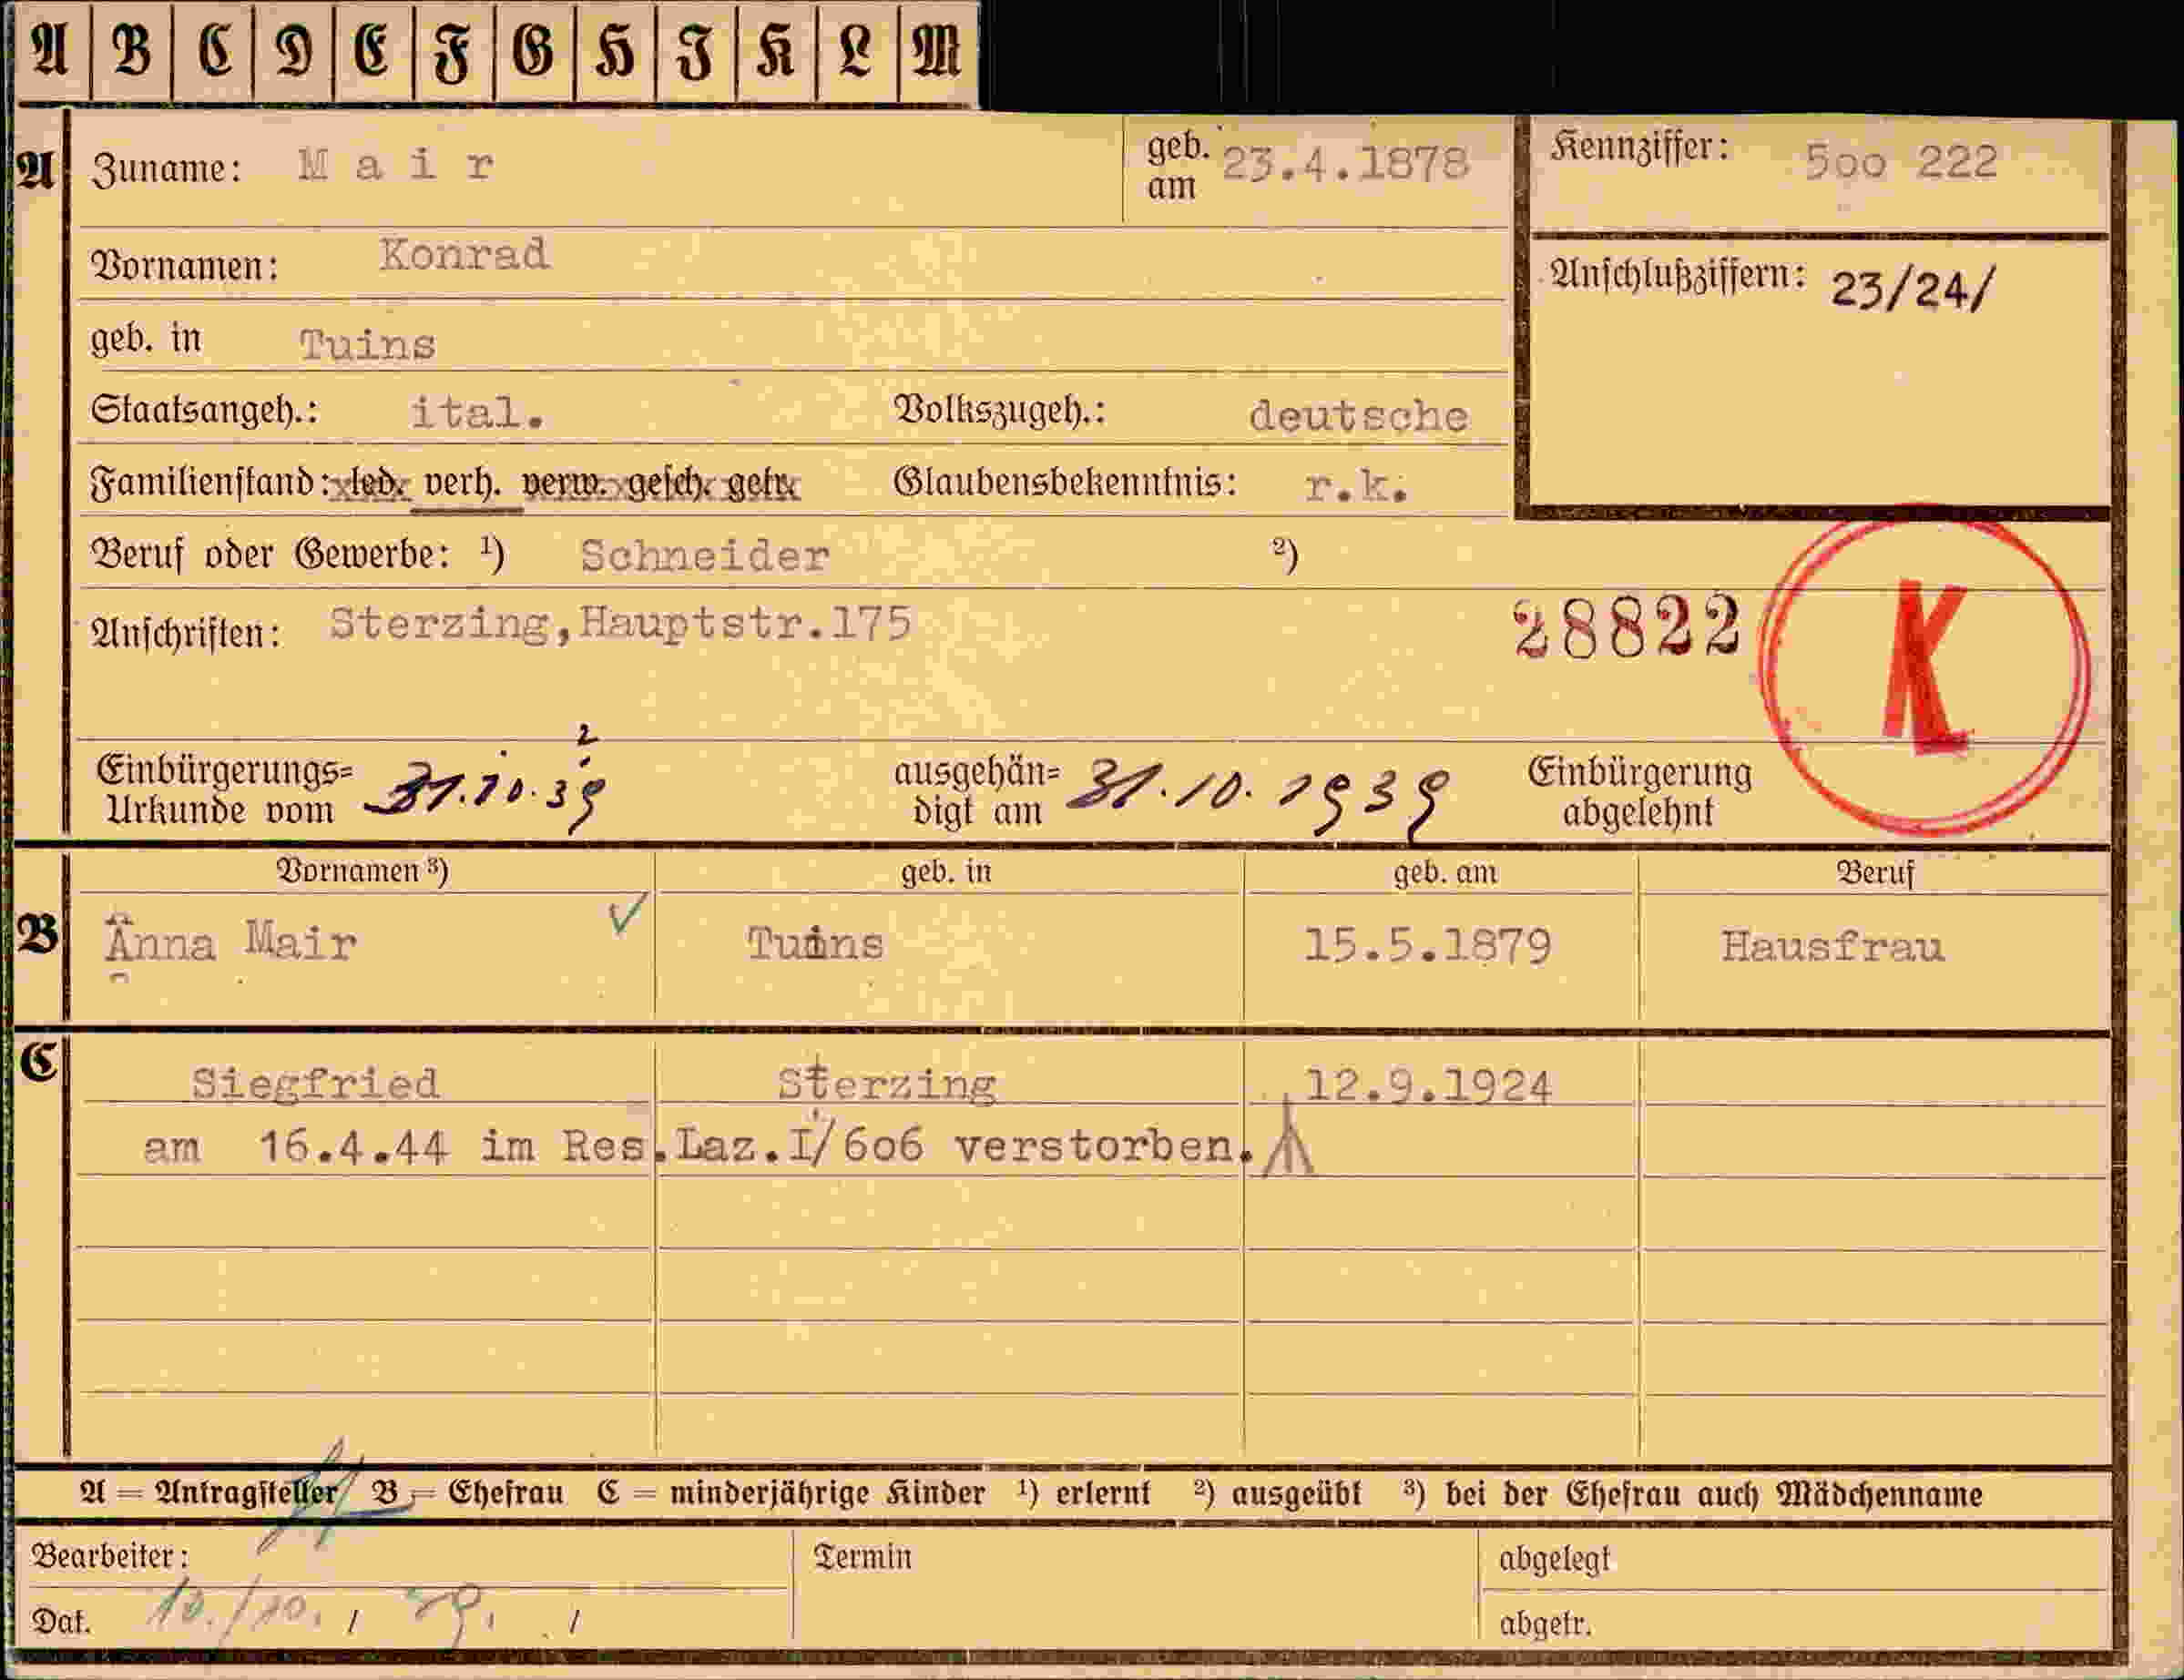 A B C D E F G H I K L M
A Zuname: Mair geb. am 23.4.1878 Kennziffer: 500 222
Vornamen: Konrad
Anschlußziffern: 23/24/
geb. in Tuins
Staatsangeh.: ital. Volkszugeh.: deutsche
Familienstand: led. verh. verw. gesch. getr. Glaubensbekenntnis: r.k.
Beruf oder Gewerbe: ¹) Schneider ²)
Anschriften: Sterzing, Hauptstr.175 28822 K
Einbürgerungs=
Urkunde vom 31.10.39 ausgehän=
digt am 31.10.1939 Einbürgerung
abgelehnt
Vornamen ³) geb. in geb. am Beruf
B Anna Mair Tuins 15.5.1879 Hausfrau
C Siegfried Sterzing 12.9.1924
am 16.4.44 im Res.Laz.I/606 verstorben.
A = Antragsteller B = Ehefrau C = minderjährige Kinder ¹) erlernt ²) ausgeübt ³) bei der Ehefrau auch Mädchenname
Bearbeiter: Termin abgelegt
Dat. abgetr.